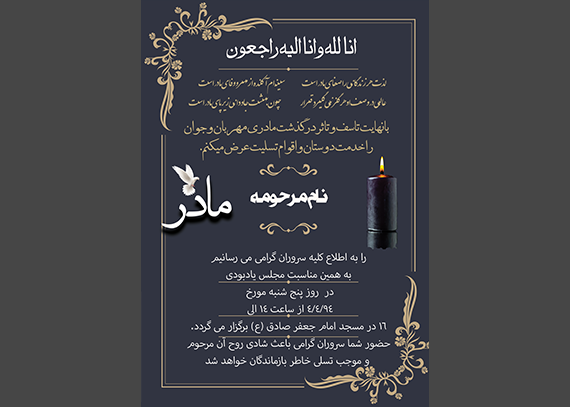 انا لله و انا الیه راجعون
لذت هر زندگانی از صفای مادر است سینه‌ام آکنده از مهر و وفای مادر است
عالمی در وصف او هرگز نمی‌گیرد قرار چون بهشت جاودانی زیر پای مادر است
با نهایت تاسف و تاثر درگذشت مادری مهربان و جوان
را خدمت دوستان و اقوام تسلیت عرض میکنم.
نام مرحومه
مادر
را به اطلاع کلیه سروران گرامی می رسانیم
به همین مناسبت مجلس یادبودی
در روز پنج شنبه مورخ
۴/۴/۹۴ از ساعت ۱۴ الی
۱۶ در مسجد امام جعفر صادق (ع) برگزار می گردد.
حضور شما سروران گرامی باعث شادی روح آن مرحوم
و موجب تسلی خاطر بازماندگان خواهد شد